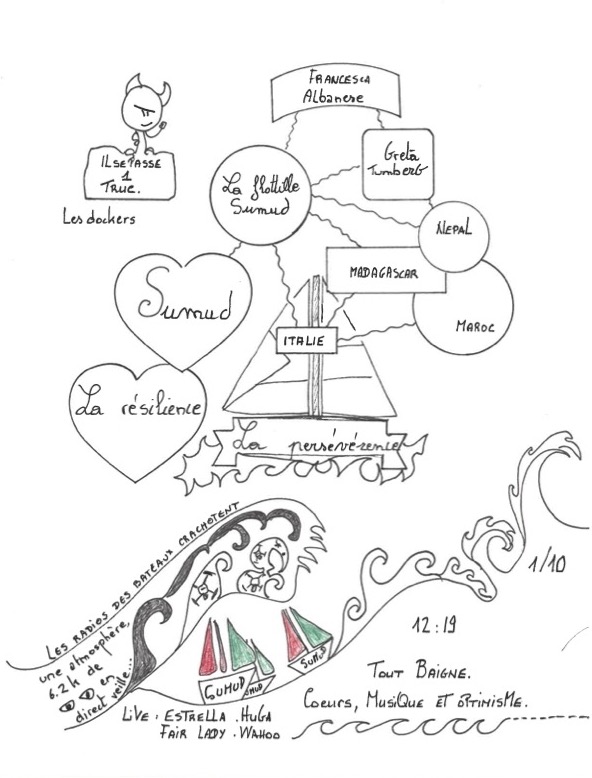 Francesca
Albanese
Greta
Tumberg
La flottille
Sumud
IL SE PASSE
1
TRUC.
Les dockers
NEPAL
MADAGASCAR
Sumud
MAROC
ITALIE
La résilience
La persévérence
LES RADIOS DES BATEAUX CRACHOTENT
1/10
une atmosphère,
6.2 k de
en
direct veille...
12:19
SUMUD
GUMUD
SMUD
TOUT BAIGNE.
COEURS, MUSIQUE ET OPTINISME.
LIVE: ESTRELLA. HUGA
FAIR LADY. WAHOO